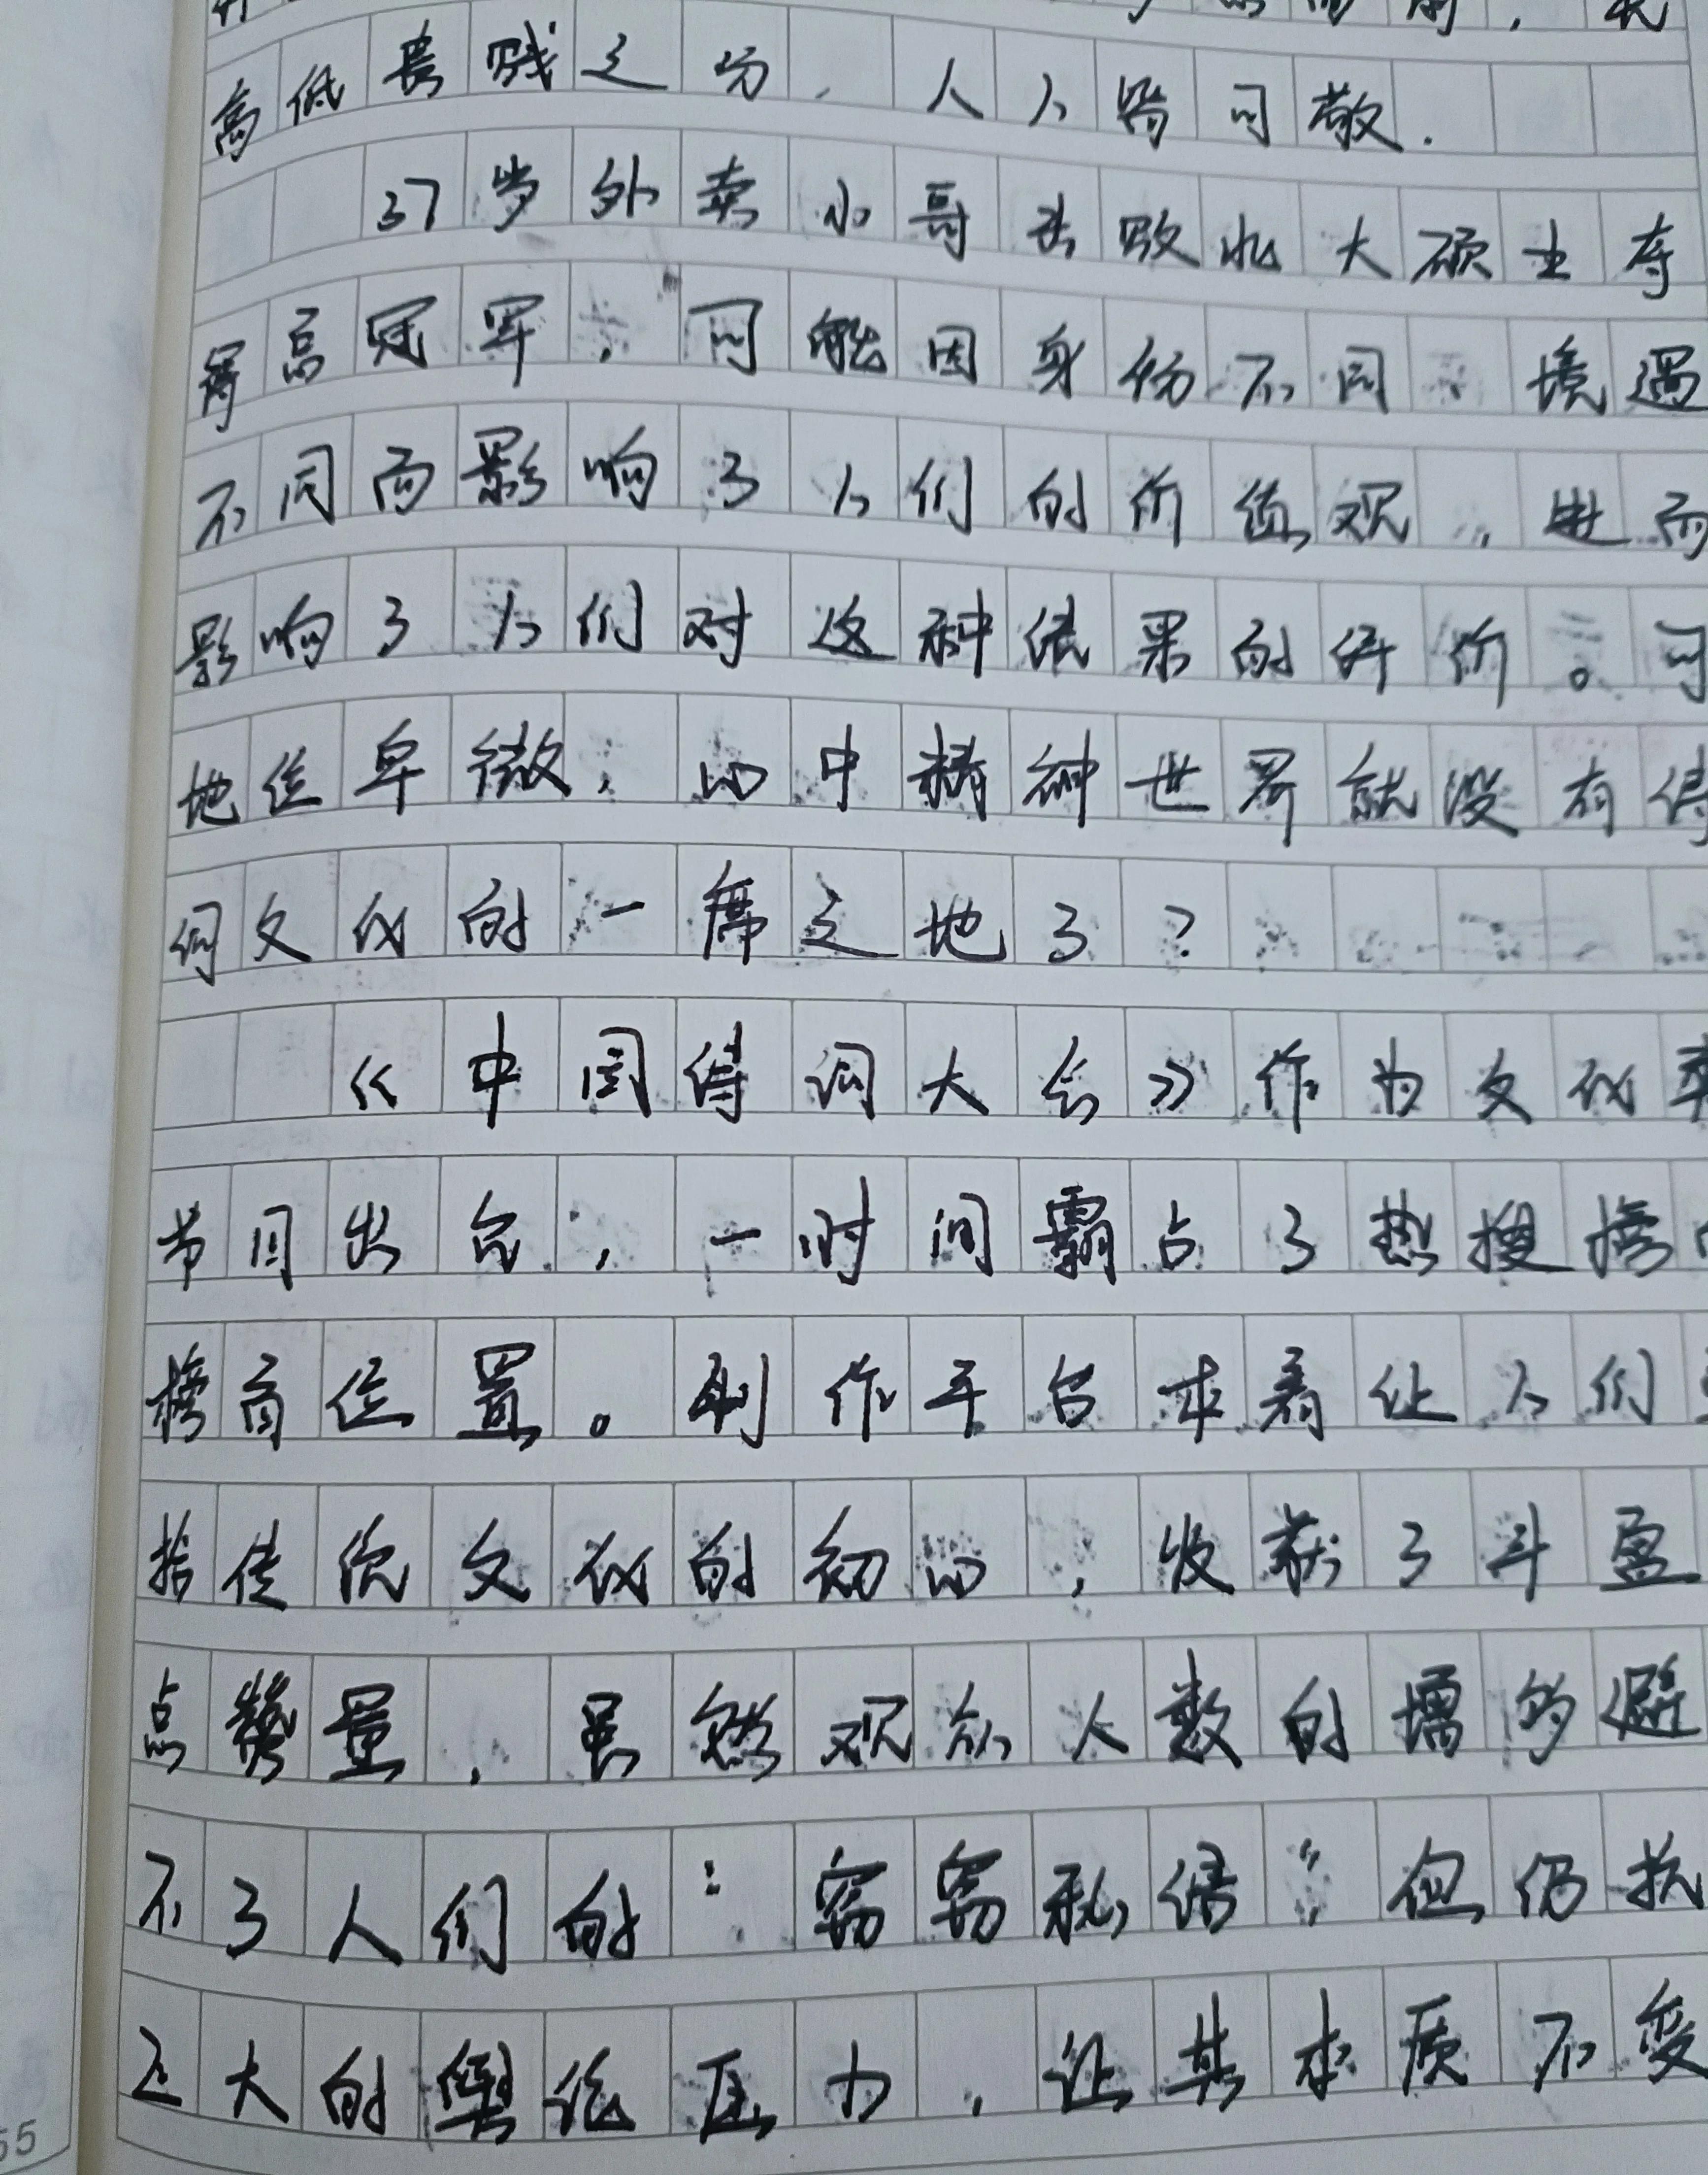 高低贵贱之分，人人皆可敬．
37岁外卖小哥击败北大硕士夺
得高冠军，可能因身份不同、境遇
不同而影响了人们的价值观，进而
影响了人们对这种结果的评价。可
地位卑微，心中精神世界就没有诗
词文化的一席之地了？
《中国诗词大会》作为文化类
节目出台，一时间霸占了热搜榜
榜首位置。制作平台本着让人们重
拾传统文化的初心，收获了斗盈
点赞量，虽然观众人数的增多避
不了人们的“窃窃私语”，但仍抗
巨大的舆论压力，让其本质不变
55